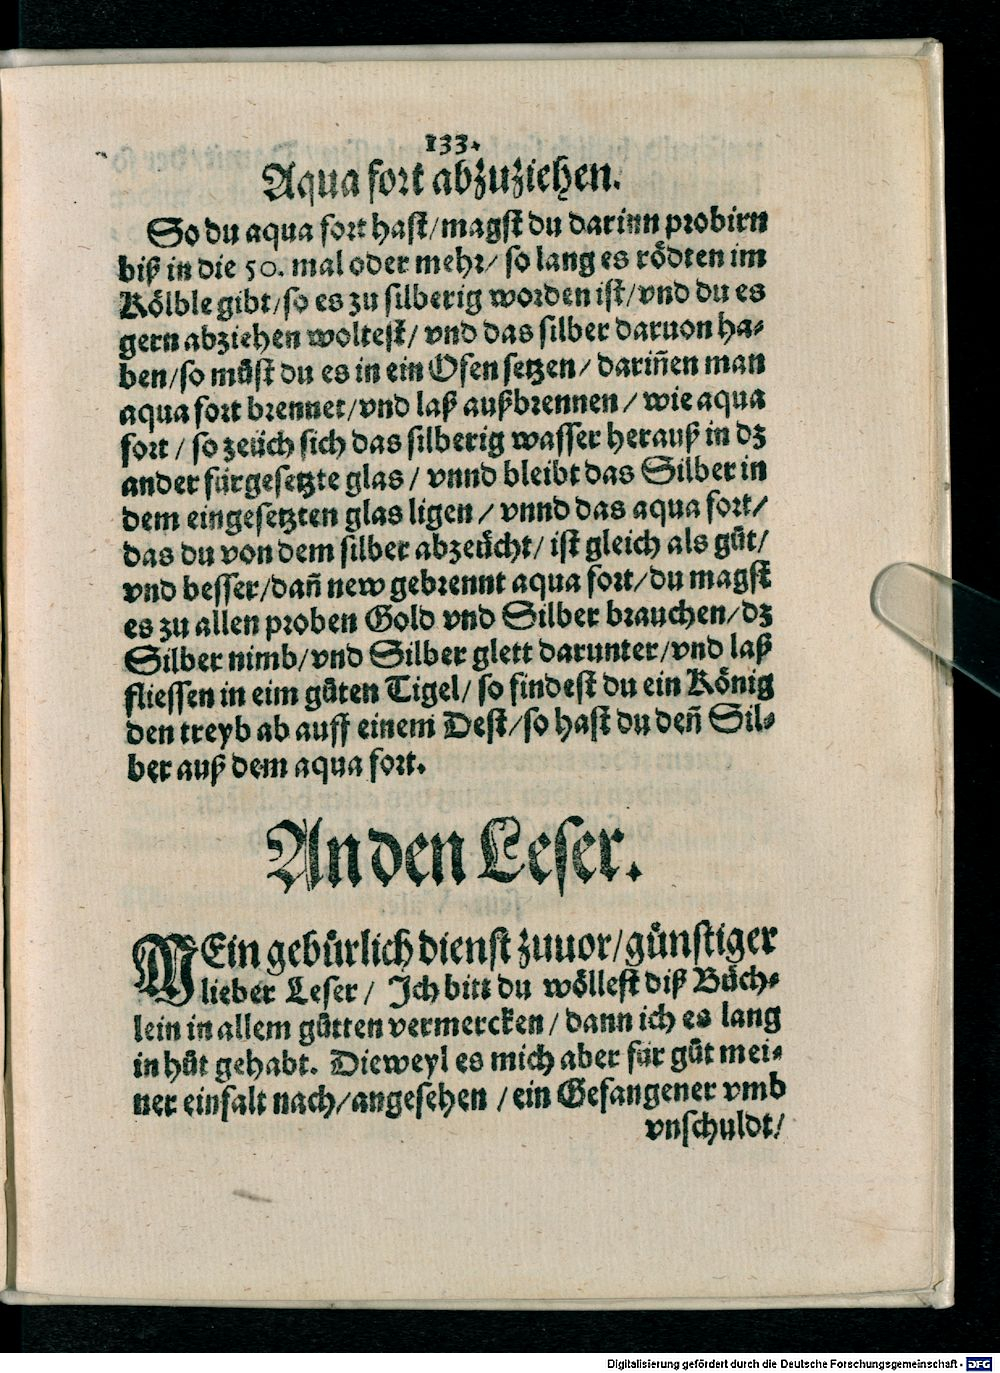 133.
Aqua fort abzuziehen.
So du aqua fort hast/magst du darinn probirn
biß in die 50. mal oder mehr/ so lang es rödten im
Kölble gibt/so es zu silberig worden ist/vnd du es
gern abziehen woltest/ vnd das silber daruon ha-
ben/so můst du es in ein Ofen setzen/ dariñen man
aqua fort brennet/vnd laß außbrennen/ wie aqua
fort/ so zeücht sich das silberig wasser herauß in dz
ander fürgesetzte glas/ vnnd bleibt das Silber in
dem eingesetzten glas ligen/ vnnd das aqua fort/
das du von dem silber abzeücht/ ist gleich als gůt/
vnd besser/dañ new gebrennt aqua fort/du magst
es zu allen proben Gold vnd Silber brauchen/dz
Silber nimb/vnd Silber glett darunter/vnd laß
fliessen in eim gůten Tigel/ so findest du ein König
den treyb ab auff einem Dest/so hast du deñ Sil-
ber auß dem aqua fort.
An den Leser.
MEin gebürlich dienst zuuor/günstiger
lieber Leser/ Ich bitt du wöllest diß Büch-
lein in allem gůtten vermercken/ dann ich es lang
in hůt gehabt. Dieweyl es mich aber für gůt mei-
ner einfalt nach/angesehen/ein Gefangener vmb
vnschuldt/
Digitalisierung gefördert durch die Deutsche Forschungsgemeinschaft - DFG